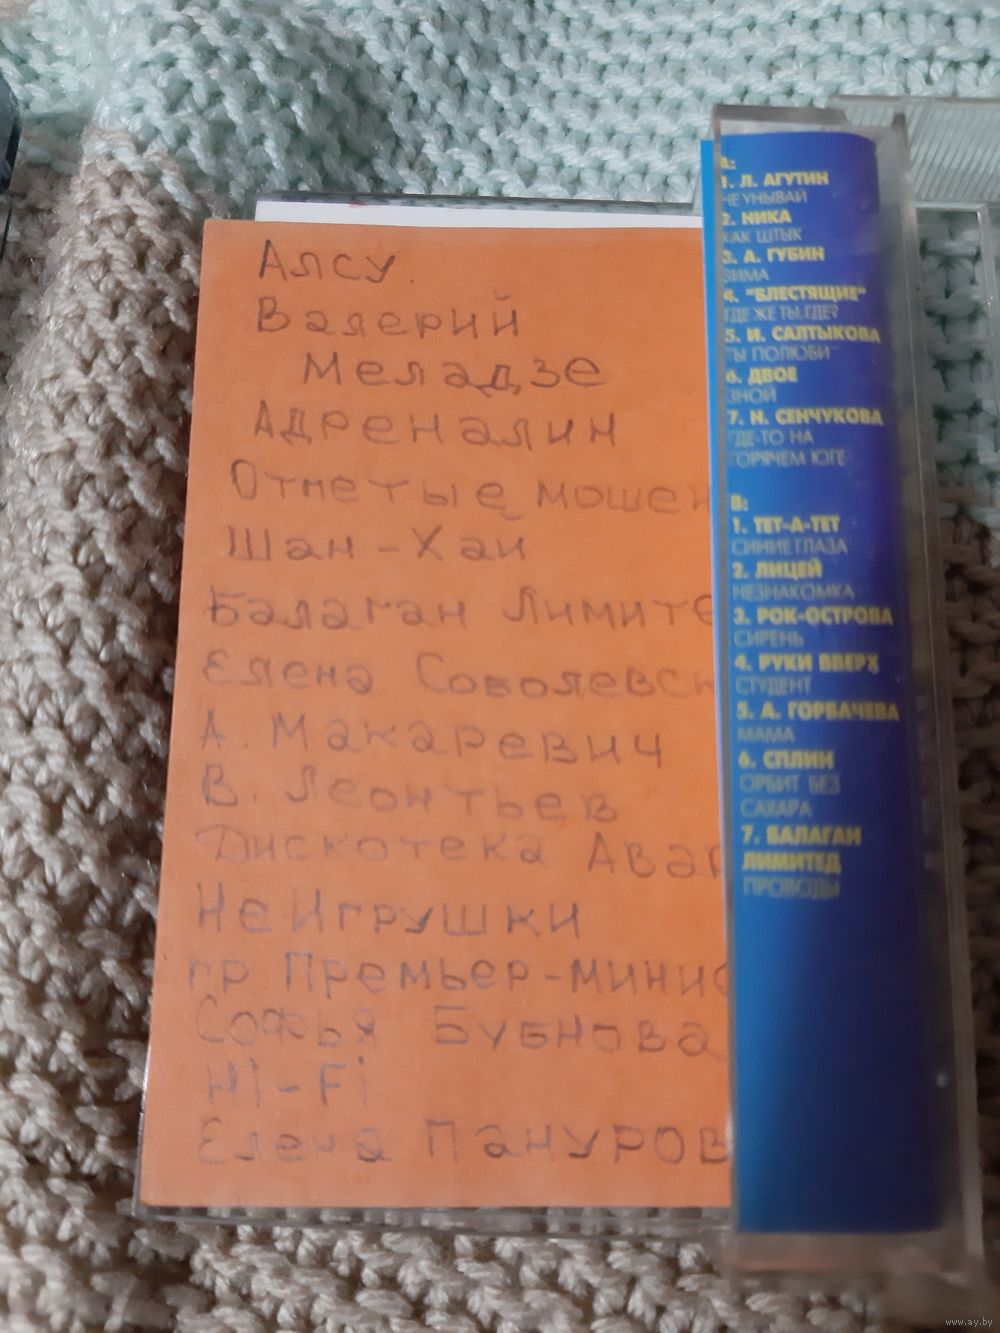 Алсу.
Валерий
Меладзе
Адреналин
Отпетые мошен
Шан-Хай
Балаган Лимите
Елена Соболевск
А. Макаревич
В. Леонтьев
Дискотека Авар
Не Игрушки
гр Премьер-минис
Софья Бубнова
Hi-Fi
Елена Пануров
А:
1. Л. АГУТИН
НЕ УНЫВАЙ
2. НИКА
КАК ШТЫК
3. А. ГУБИН
ЗИМА
4. "БЛЕСТЯЩИЕ"
ГДЕ ЖЕ ТЫ, ГДЕ?
5. И. САЛТЫКОВА
ТЫ ПОЛЮБИ
6. ДВОЕ
ЗНОЙ
7. Н. СЕНЧУКОВА
ГДЕ-ТО НА
ГОРЯЧЕМ ЮГЕ
В:
1. ТЕТ-А-ТЕТ
СИНИЕ ГЛАЗА
2. ЛИЦЕЙ
НЕЗНАКОМКА
3. РОК-ОСТРОВА
СИРЕНЬ
4. РУКИ ВВЕРХ
СТУДЕНТ
5. А. ГОРБАЧЕВА
МАМА
6. СПЛИН
ОРБИТ БЕЗ
САХАРА
7. БАЛАГАН
ЛИМИТЕД
ПРОВОДЫ
www.ay.by